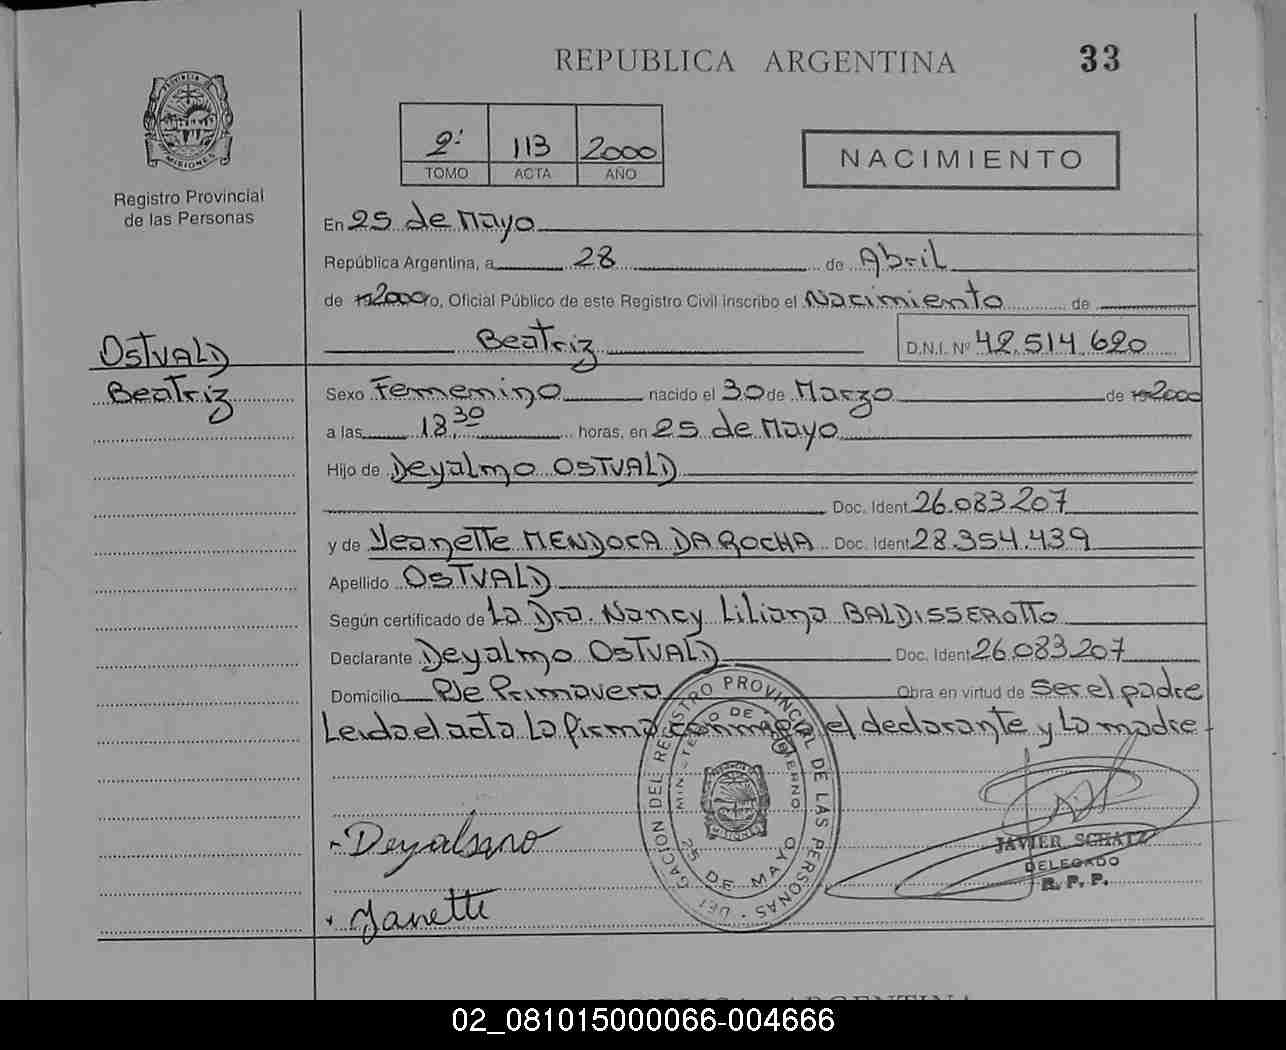 REPUBLICA ARGENTINA 33
PROVINCIA MISIONES
2º 113 2000
TOMO ACTA AÑO
NACIMIENTO
Registro Provincial
de las Personas
En 25 de Mayo
República Argentina, a 28 de Abril
de 2000 yo, Oficial Público de este Registro Civil inscribo el Nacimiento de
Beatriz D.N.I. Nº 42.514.620
OSTVALD
Beatriz
Sexo Femenino nacido el 30 de Marzo de 2000
a las 18,30 horas, en 25 de Mayo
Hijo de Deyalmo OSTVALD
Doc. Ident 26.083.207
y de Yeanette MENDOCA DA ROCHA Doc. Ident 28.354.439
Apellido OSTVALD
Según certificado de La Dra. Nancy Liliana BALDISSEROTTO
Declarante Deyalmo OSTVALD Doc. Ident 26.083.207
Domicilio Pje Primavera Obra en virtud de ser el padre
Leida el acta La firma conmigo el declarante y La madre
DELEGACION DEL REGISTRO PROVINCIAL DE LAS PERSONAS
MINISTERIO DE GOBIERNO
MISIONES
25 DE MAYO
JAVIER SCHATZ
DELEGADO
R. P. P.
Janette
REPUBLICA ARGENTINA
02_081015000066-004666